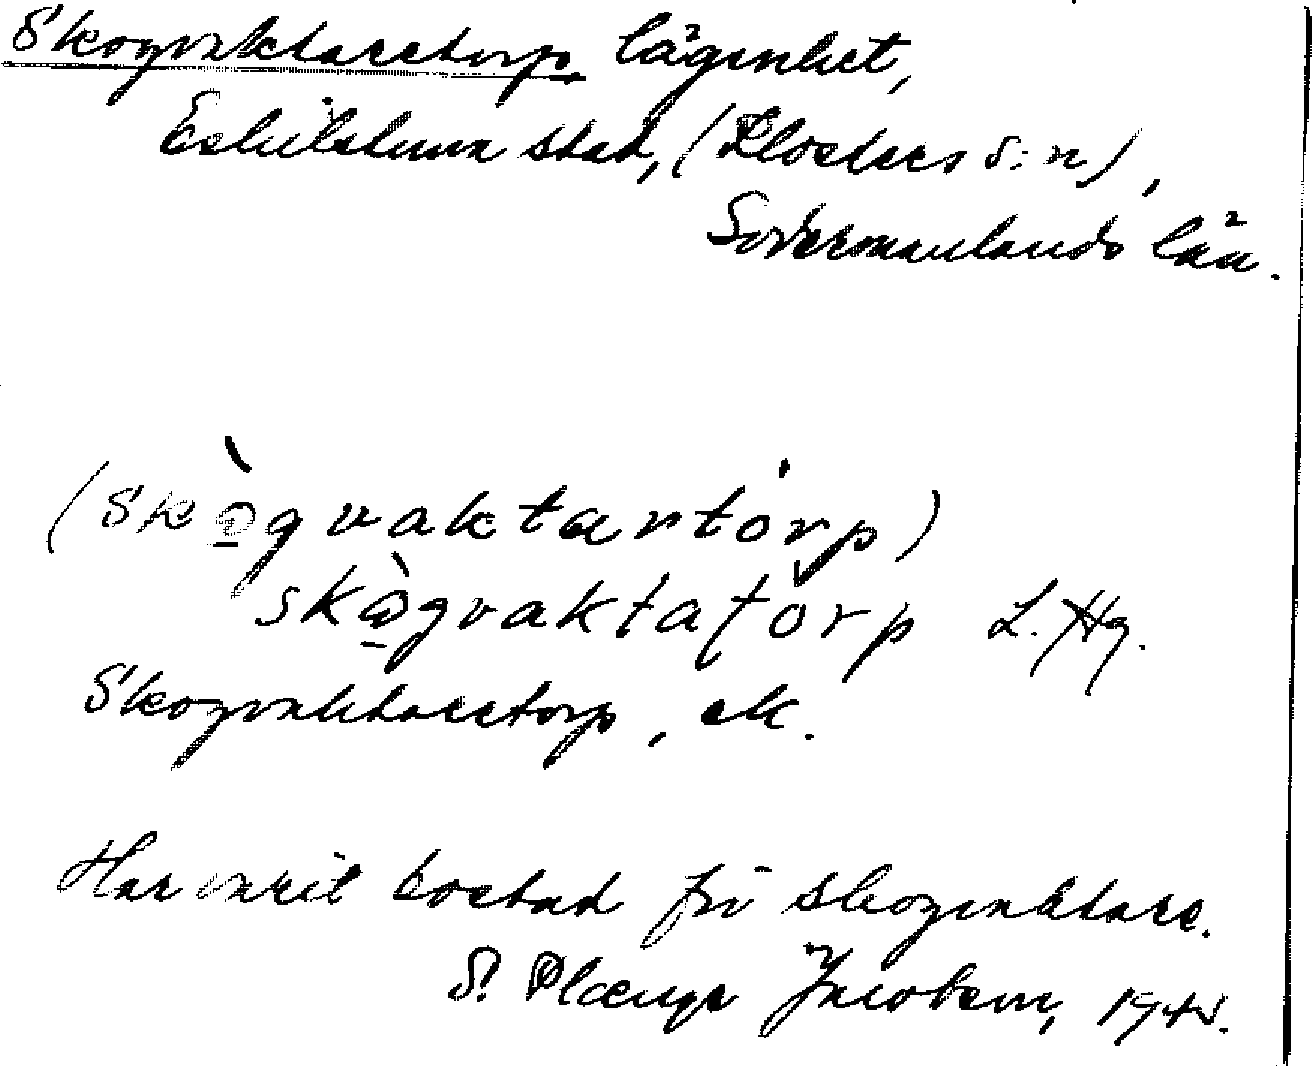 Skogvaktaretorp, lägenhet,
Eskilstuna stad, (Klosters s:n),
Södermanlands län.
(skò̱gvaktartórp)
skò̱gvaktatòrp L. Hg.
Skogvaktaretorp, ek.
Har varit bostad för skogvaktare.
S. Jacobson, 194